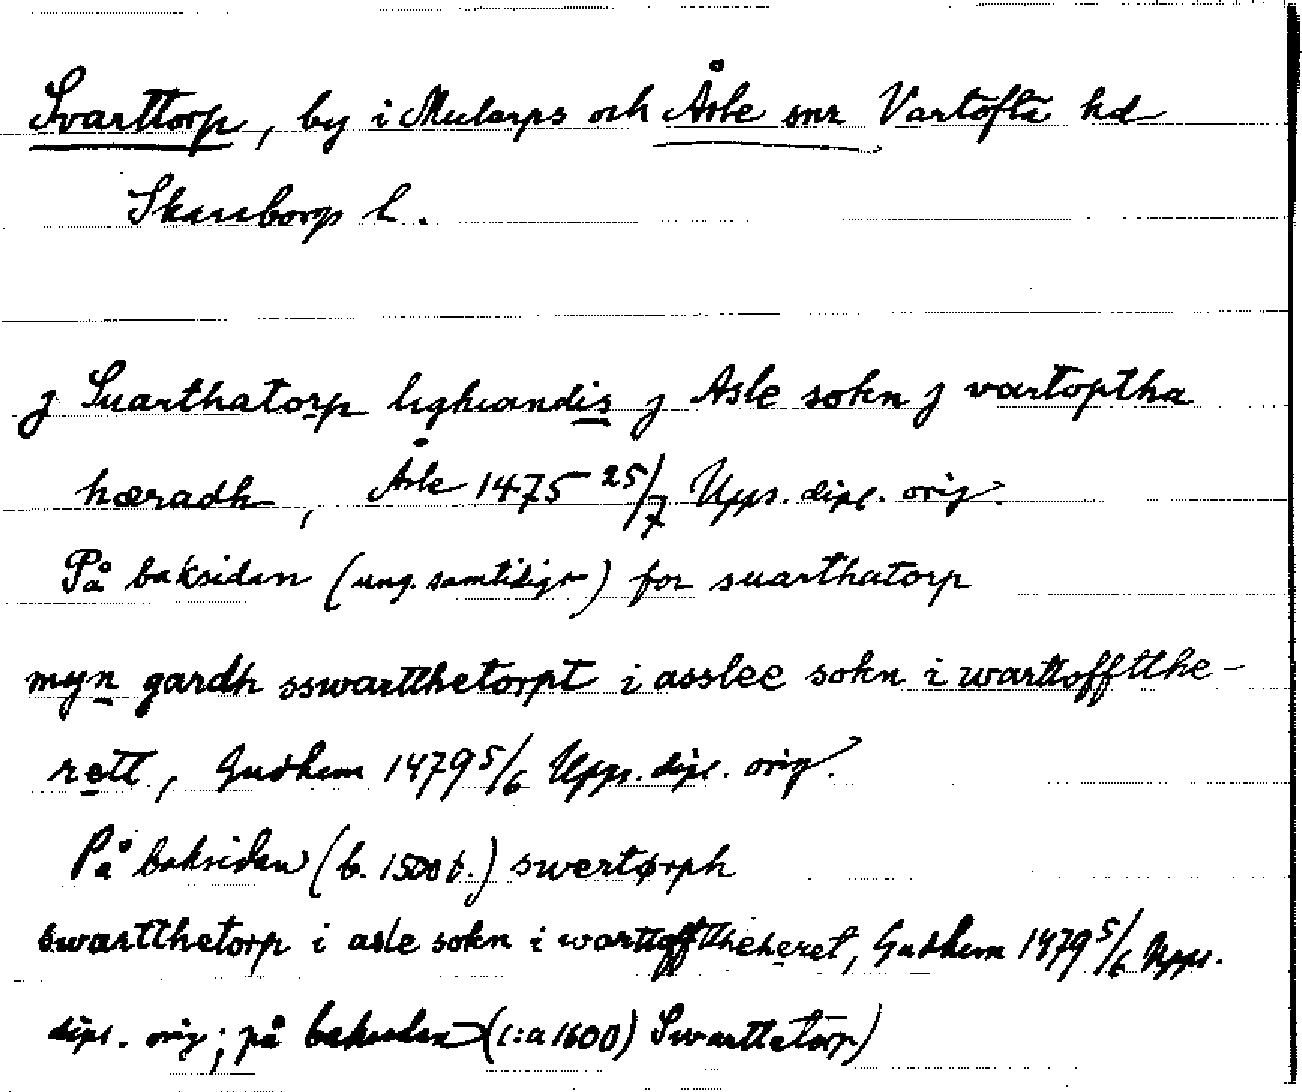 Svarttorp, by i Mularps och Åsle snr Vartofta hd
Skaraborgs l.
j Suarthatorp lighiandis j Asle sokn j vartoptha
hæradh, Åsle 1475 25/7 Upps. dipl. orig.
På baksidan (ung. samtidigt) for suarthatorp
myn gardh sswartthetorpt i asslee sokn i warttoffthe-
rett, Gudhem 1479 5/6 Upps. dipl. orig.
På baksidan (b. 1500 t.) swertørph
swartthetorp i asle sokn i warttofftheheret, Gudhem 1479 5/6 Upps.
dipl. orig; på baksidan (c:a 1600) Swarttetorp)